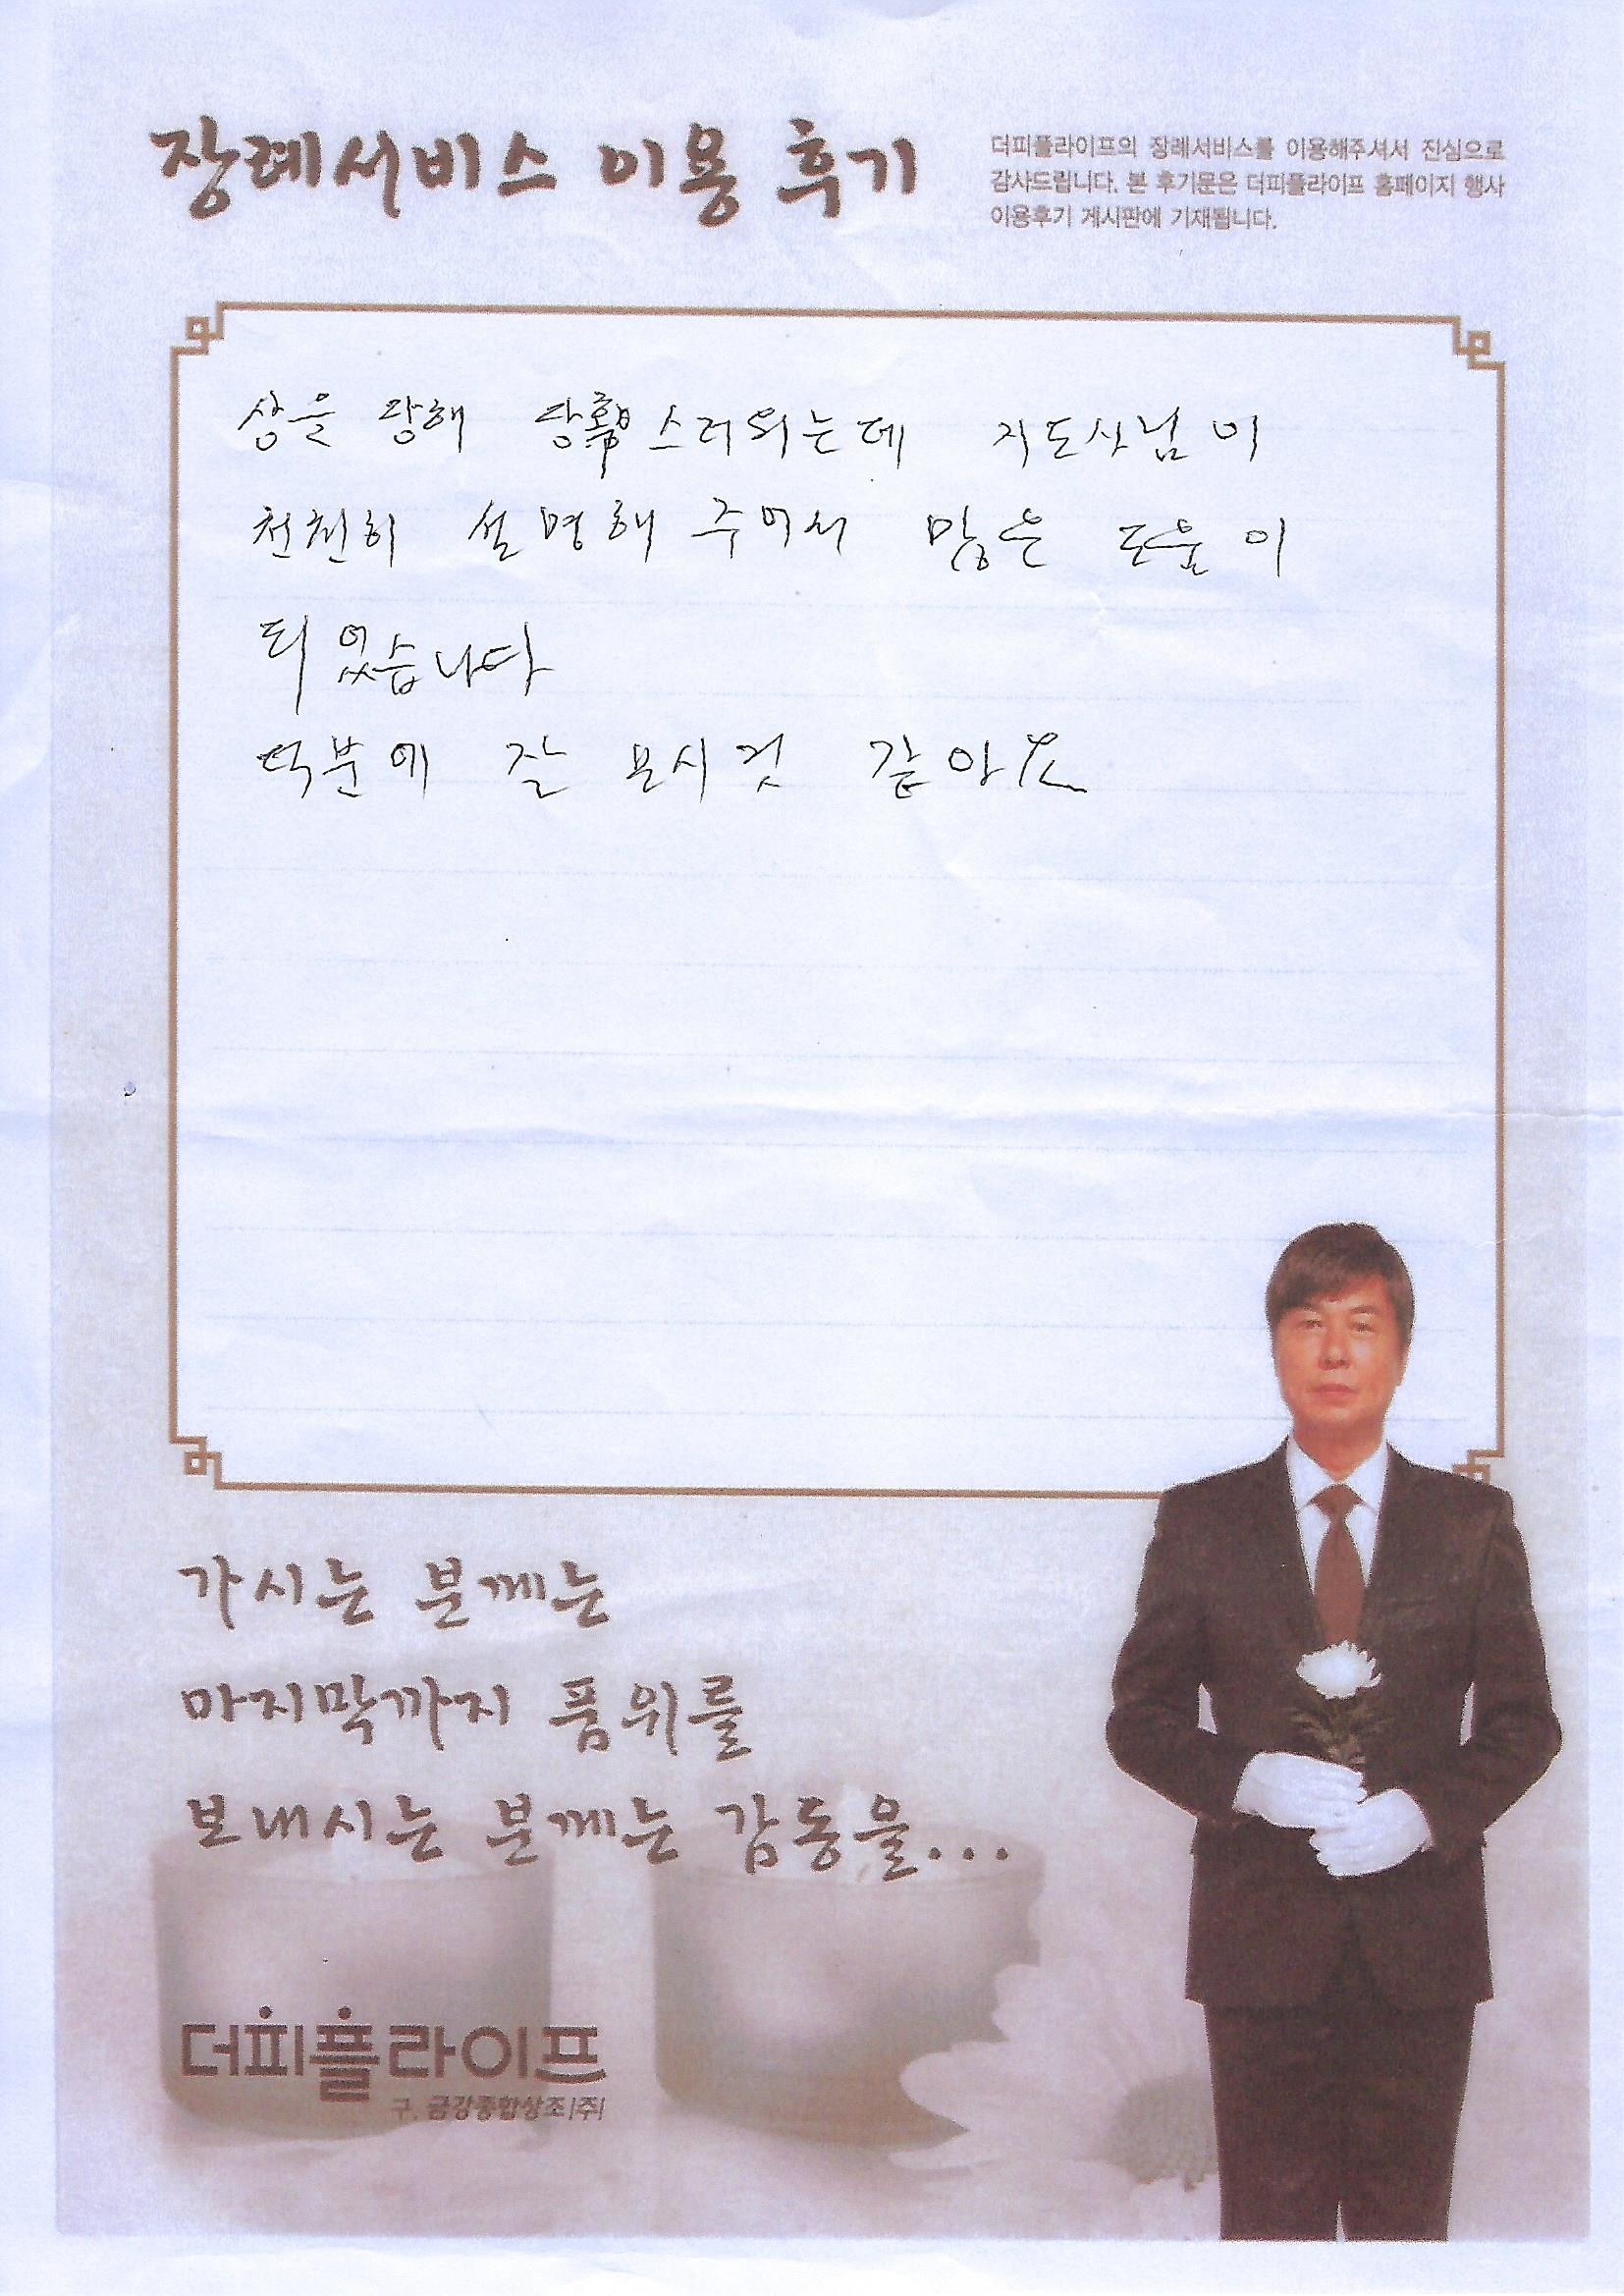 장례서비스 이용 후기
더피플라이프의 장례서비스를 이용해주셔서 진심으로
감사드립니다. 본 후기문은 더피플라이프 홈페이지 행사
이용후기 게시판에 기재됩니다.
상을 당해 당황스러웠는데 지도사님이
천천히 설명해 주어서 많은 도움이
되었습니다
덕분에 잘 모시것 같아요
가시는 분께는
마지막까지 품위를
보내시는 분께는 감동을...
더피플라이프
구. 금강종합상조(주)